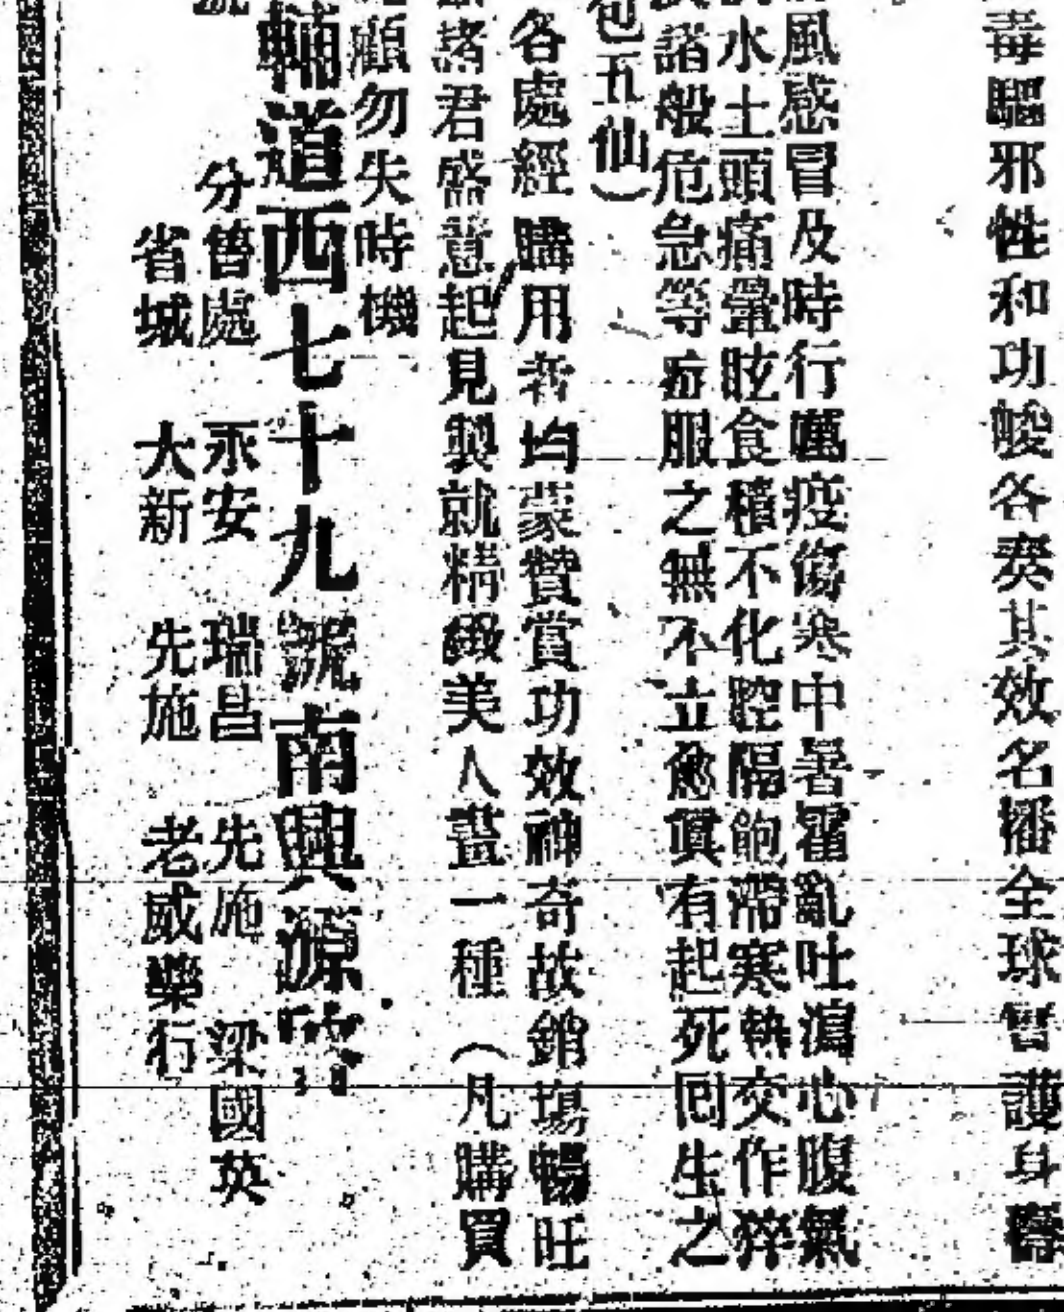 毒驅邪性和功峻各奏其效名播全球誓護身
風感冒及時行癘疫傷寒中暑霍亂吐瀉心腹氣
水土頭痛暈眩食積不化膣隔飽滯寒熱交作猝
諸般危急等症服之無不立愈眞有起死囘生之
包五仙）
各處經購用者均蒙贊賞功效神奇故銷塲暢旺
諸君盛意起見製就精緻美人畫一種（凡購買
顧勿失時機
輔道西七十九號南興源
分售處 永安 瑞昌 先施 梁國英
省城 大新 先施 老威藥行